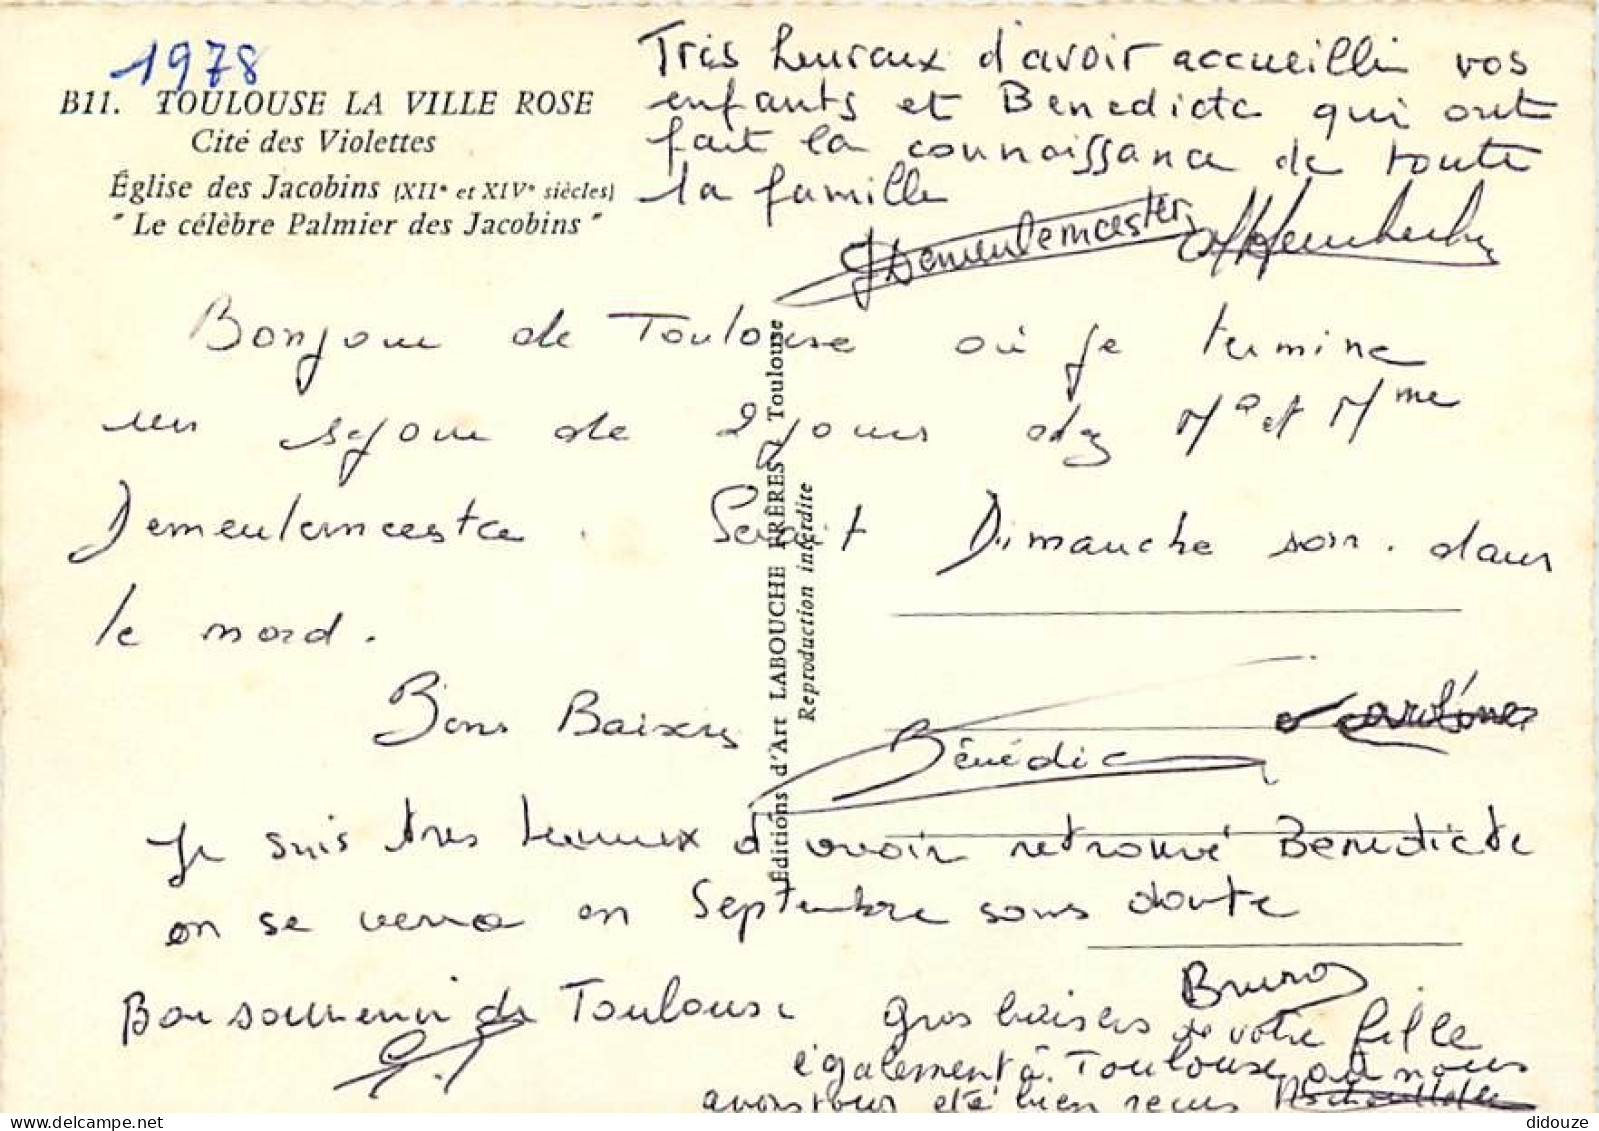 1978
B11. TOULOUSE LA VILLE ROSE
Cité des Violettes
Église des Jacobins (XIIe et XIVe siècles)
"Le célèbre Palmier des Jacobins"
Très heureux d'avoir accueilli vos
enfants et Benedicte qui ont
fait la connaissance de toute
la famille
Demeulemeester
Bonjour de Toulouse où je termine
un séjour de 2 jours chez Mr et Mme
Demeulemeester. Serait Dimanche soir. dans
le nord.
Bons Baisers
Bénédic
Caroline
Je suis très heureux d'avoir retrouvé Benedicte
on se verra en Septembre sans doute
Bruno
Bon souvenir de Toulouse
G.
Gros baisers de votre fille
également à Toulouse où nous
avons tous été bien reçus
Éditions d'Art LABOUCHE FRÈRES, Toulouse
Reproduction interdite
didouze